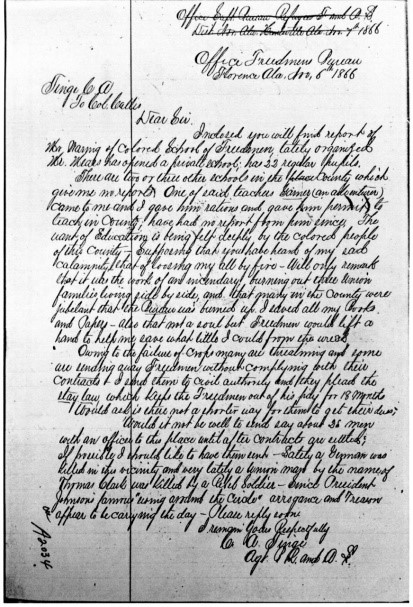 Office Supt Bureau Refugees F. and A. L.
Dist Nor. Ala. Huntsville Ala Nov. 7th 1866
Office Freedmens Bureau
Florence, Ala, Nov, 6th 1866
Tinge C. A.
To Col. Callis
Dear Sir.
Inclosed you will find report of
Mr. Waring of Colored School of Freedmen, lately organized
Mr. has opened a private school; has 22 regular pupils.
There are two or three other schools in the place County which
give me no report; One of said teachers
came to me and I gave him rations and gave him permit to
teach in County, have had no report from him since. The
want of Education is being felt deeply by the colored people
of this County – Supposing that you have heard of my sad
calamity, that of loosing my all by fire – Will only remark
that it was the work of an incendiary, burning out three Union
families living side by side, and that many in the County were
jubelant that the Bureau was burned up. I saved all my Books
and Papers – also that not a soul but Freedmen would lift a
hand to help me save what little I could from the wreck
Owing to the failure of crops many are threatning and some
are sending away Freedmen without complying with their
contracts I send them to civil authority and they plead the
stay law which keeps the Freedmen out of his pay for 18 Months
Would ask is there not a shorter way for them to get their dues;
Would it not be well to send say about 25 men
with an officer to this place until after contracts are settled;
If possible I should like to have them sent – Lately a German was
killed in this vicinity and very lately a Union man by the name of
Thomas Clark was killed by a Rebel Soldier – Since President
Johnson's famous "swing around the circle" arrogance and Treason
appear to be carrying the day – Please reply soon.
I remain Yours Respectfully
C. A. Tinge
Agt. R. and A. L.